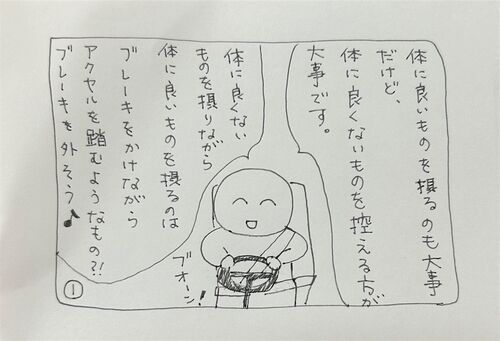 体に良いものを摂るのも大事
だけど、
体に良くないものを控える方が
大事です。
体に良くない
ものを摂りながら
体に良いものを摂るのは
ブレーキをかけながら
アクセルを踏むようなもの?!
ブレーキを外そう♪
ブオーン!
①